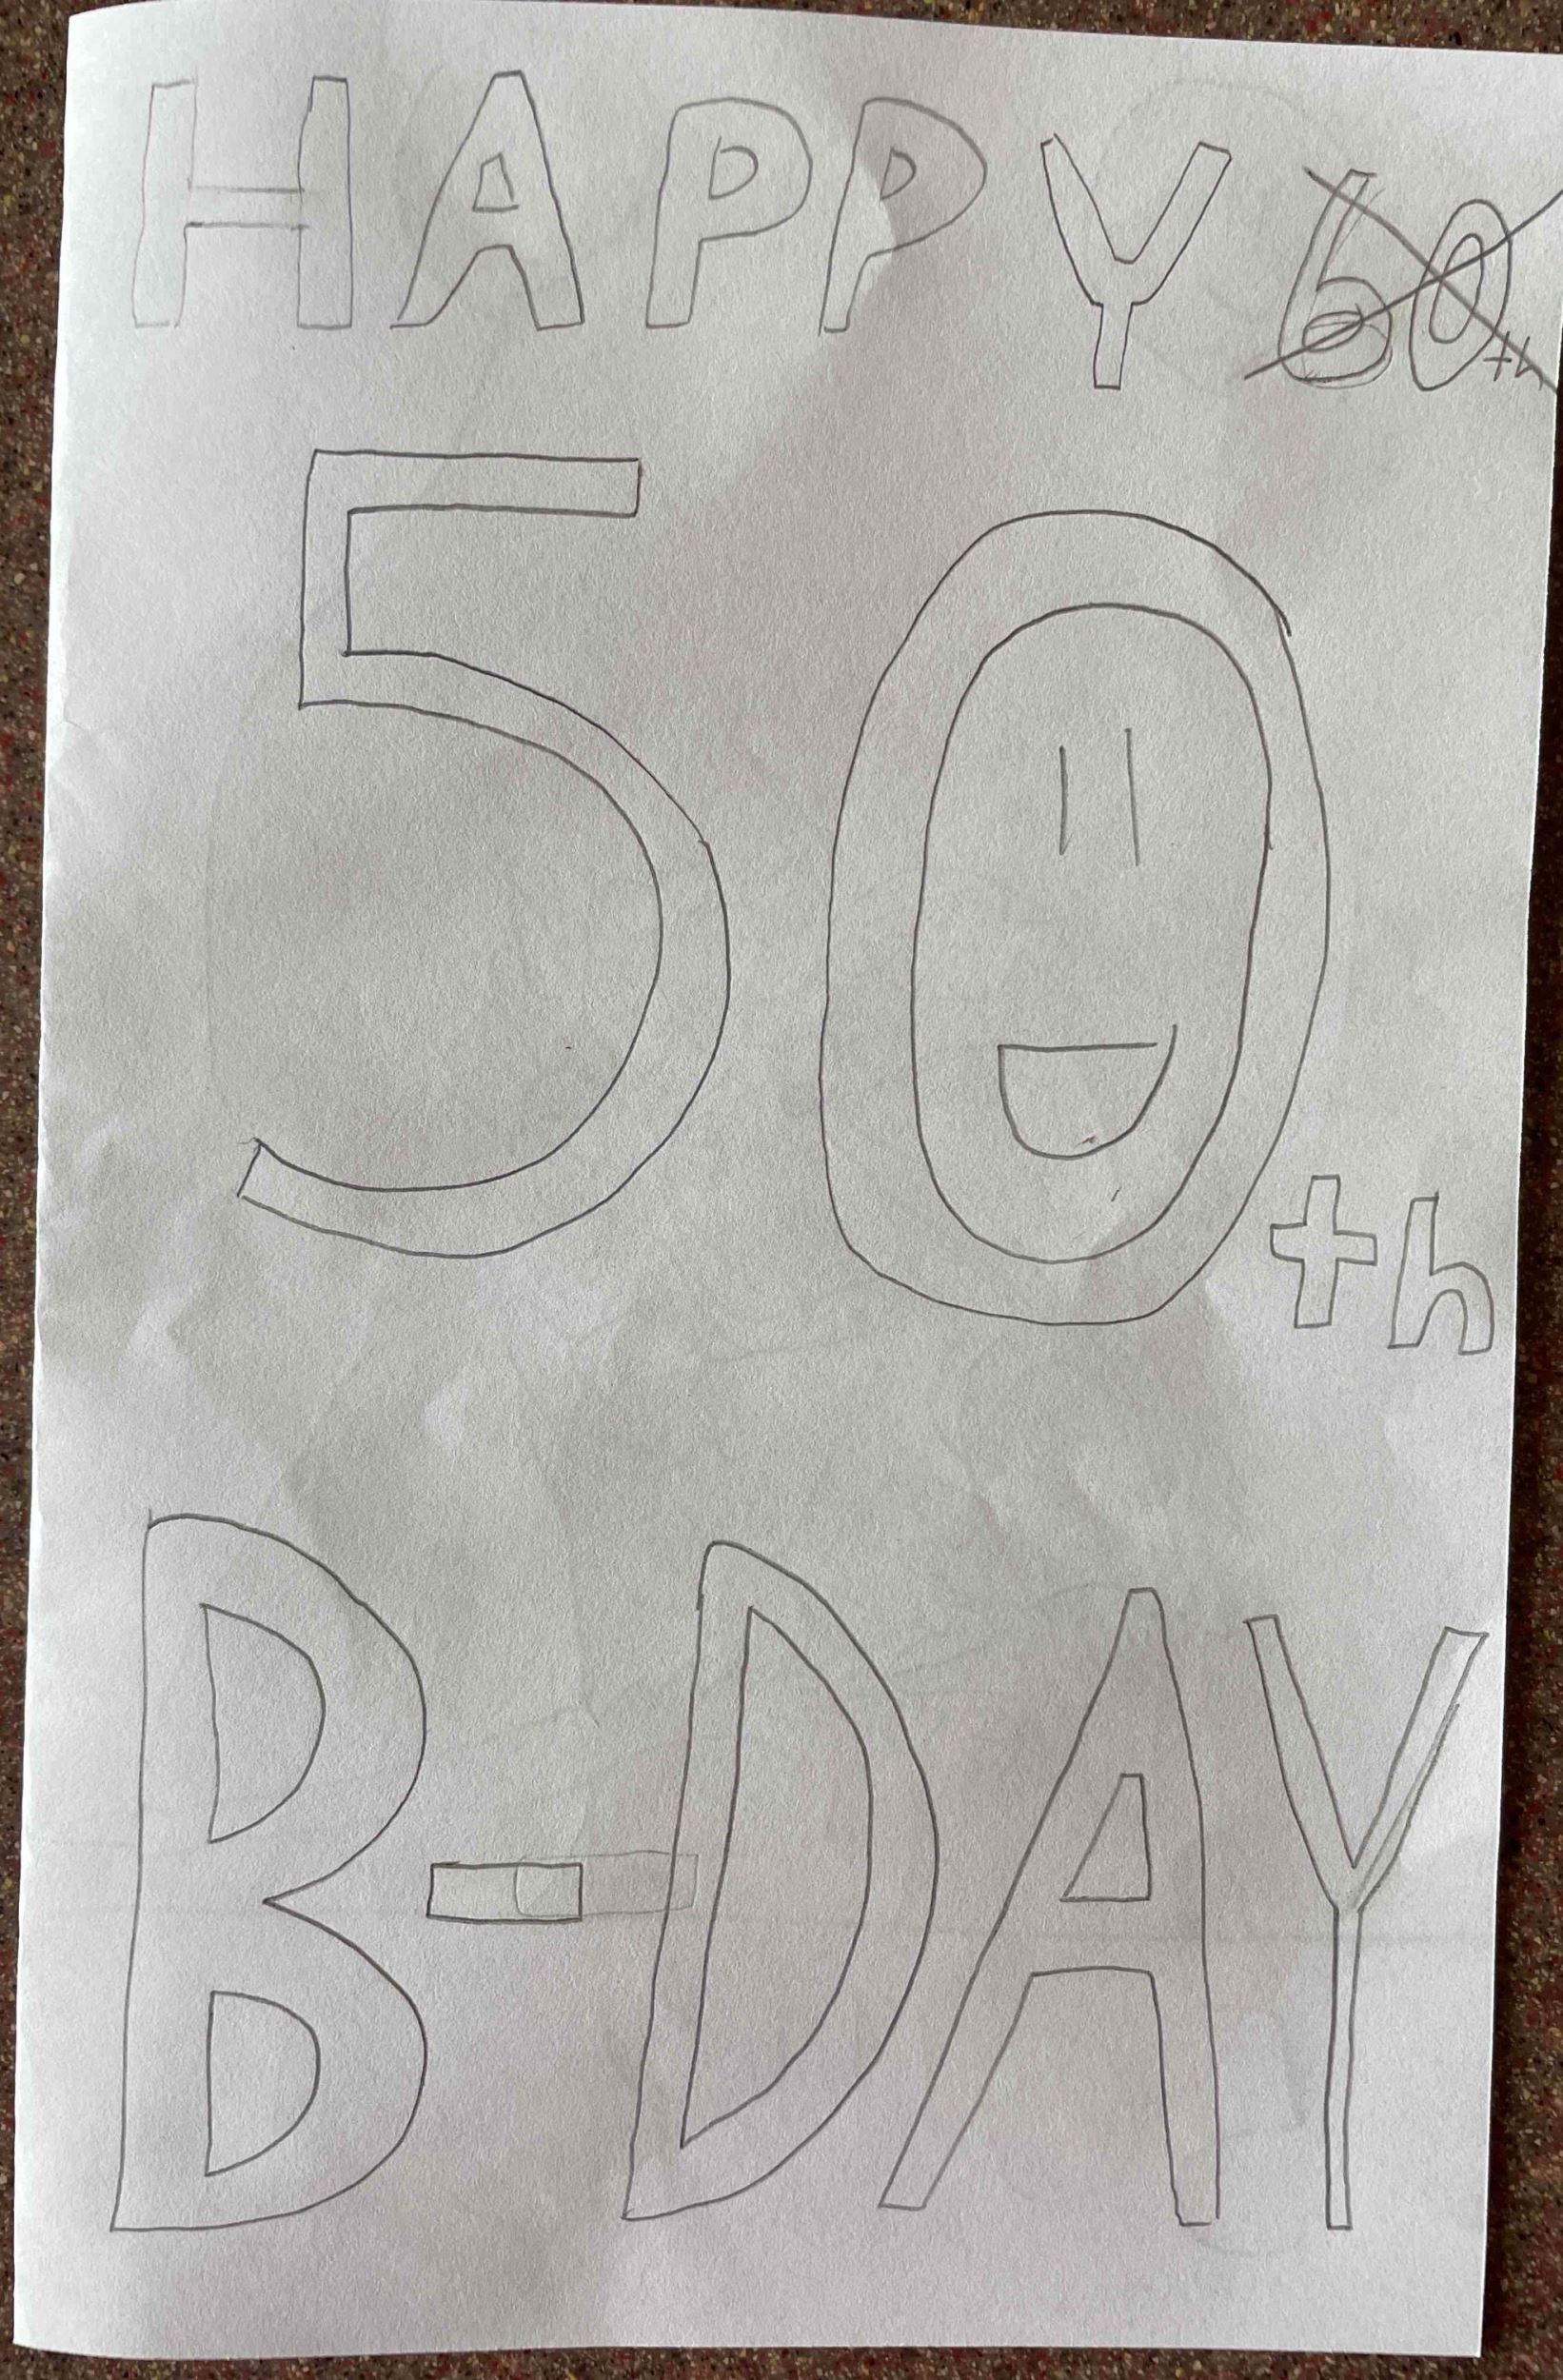 HAPPY 60th
50th
B-DAY